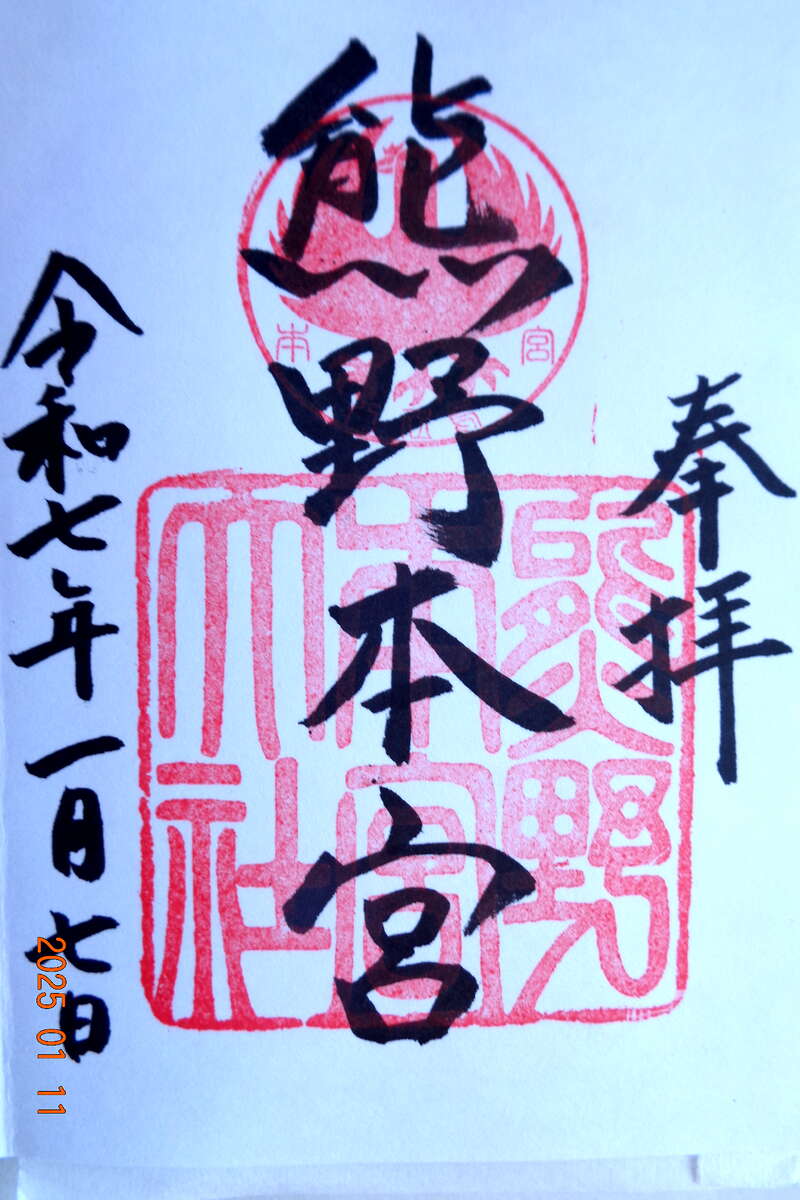 奉拝
熊野本宮
熊野
本宮
大社
本 宮
令和七年一月七日
2025 01 11